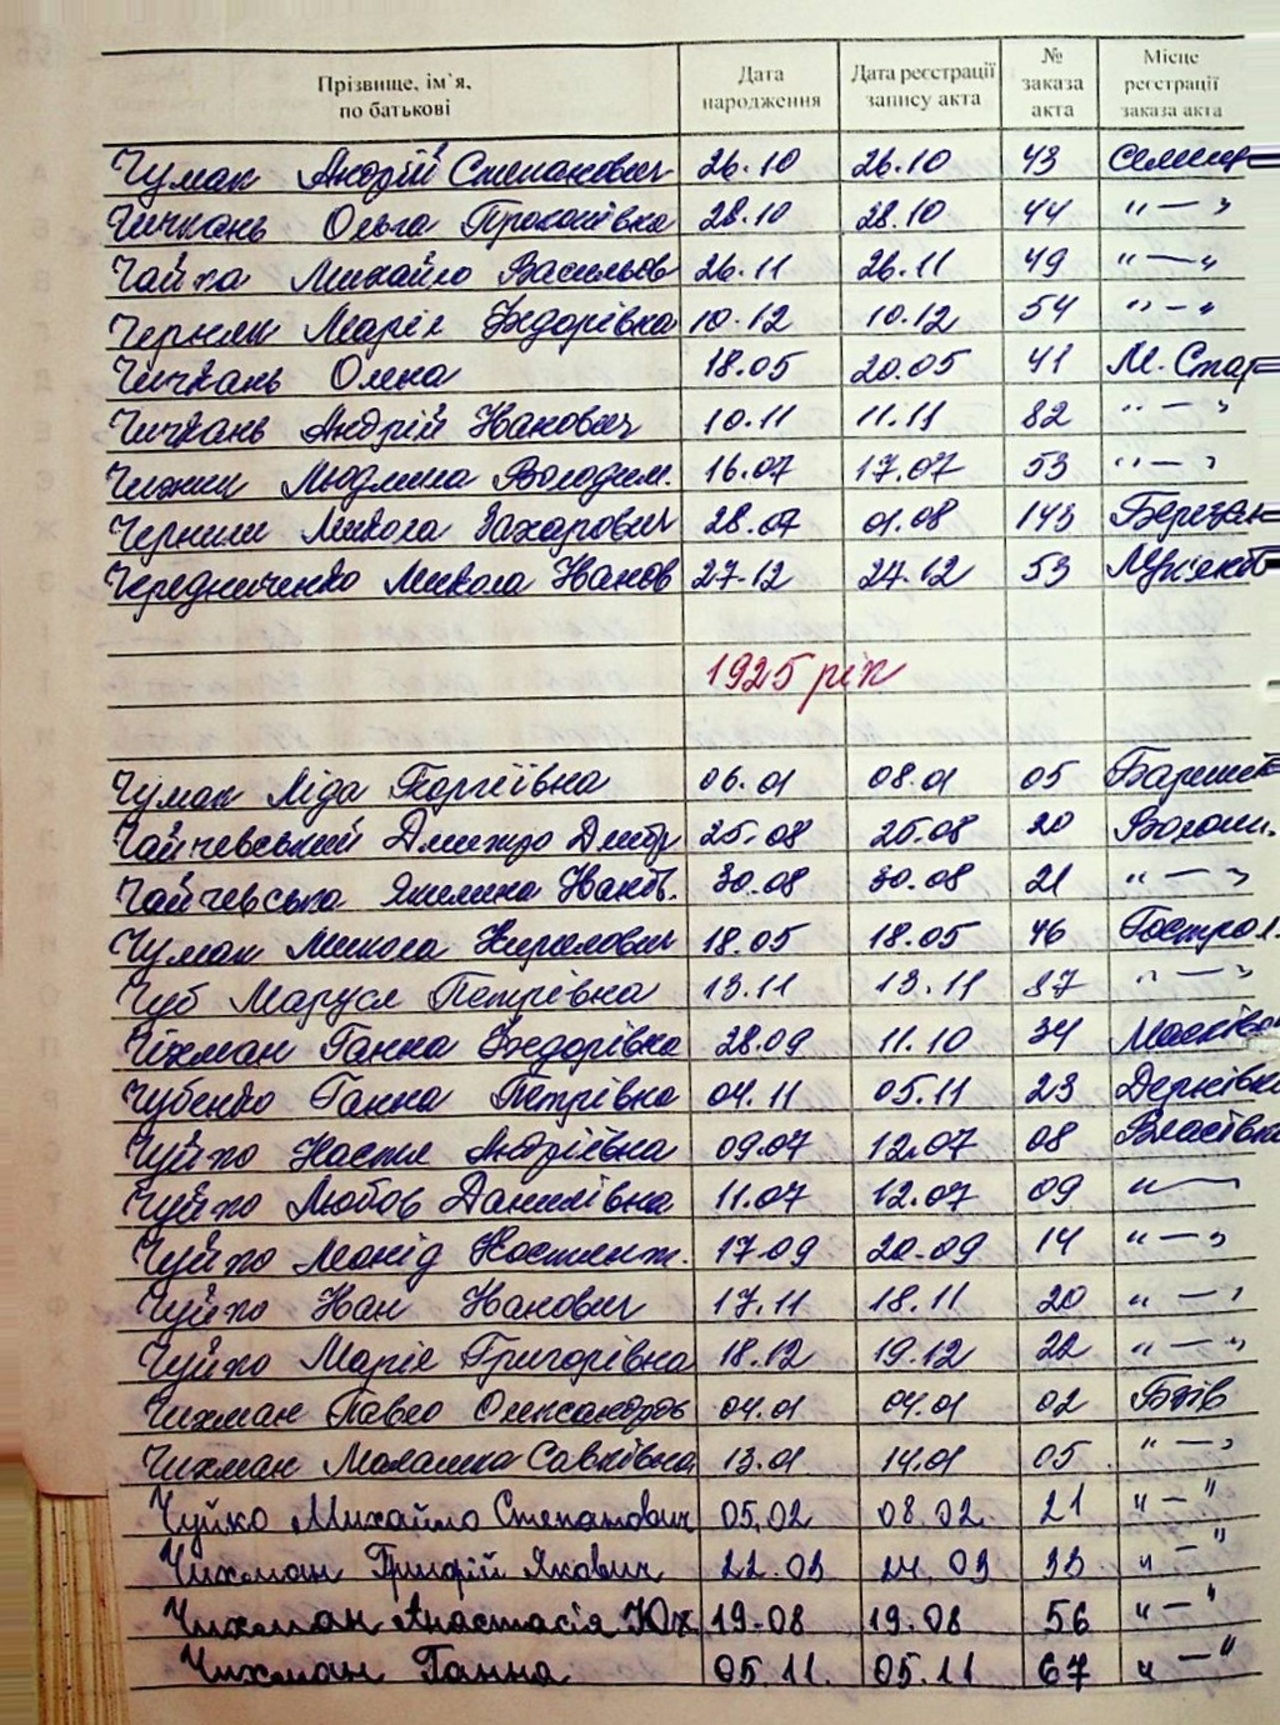 Прізвище, ім`я, по батькові Дата народження Дата реєстрації запису акта № заказа акта Місце реєстрації заказа акта
Чумак Андрій Степанович 26.10 26.10 43
Чичкань Ольга Прокопівна 28.10 28.10 44 " — "
Чайка Михайло Васильов 26.11 26.11 49 " — "
Черняк Марія Федорівна 10.12 10.12 54 " — "
Чичкань Олена 18.05 20.05 41 М. Стар
Чичкань Андрій Іванович 10.11 11.11 82 " — "
Чижик Людмила Володим. 16.07 17.07 53 " — "
Микола Захарович 28.07 01.08 143 Березан
Чередниченко Микола Іванов 27.12 27.12 53
1925 рік
Чумак Ліда Георгіївна 06.01 08.01 05
Чайчевський Дмитро Дмитр 25.08 25.08 20 Волош.
Чайчевська Якилина Іванів. 30.08 30.08 21 " — "
Чумак Микола Кирилович 18.05 18.05 46 Гострол.
Чуб Маруся Петрівна 13.11 13.11 87 " — "
Чіхман Ганна Федорівна 28.09 11.10 34
Чубенко Ганна Петрівна 04.11 05.11 23 Дернівка
Чуйко Настя Андріївна 09.07 12.07 08 Власівка
Чуйко Любов Данилівна 11.07 12.07 09 " —
Чуйко Леонід Костянт. 17.09 20.09 14 " — "
Чуйко Іван Іванович 17.11 18.11 20 " — "
Чуйко Марія Григорівна 18.12 19.12 22 " — "
Чихман Павло Олександров 04.01 04.01 02
Чихман Малашка Савківна 13.01 14.01 05 " — "
Чуйко Михайло Степанович 05.02 08.02 21 " — "
Чихман Григорій Якович 22.03 24.03 33 " — "
Чихман Анастасія Юх 19.08 19.08 56 " — "
Чихман Ганна 05.11. 05.11 67 " — "